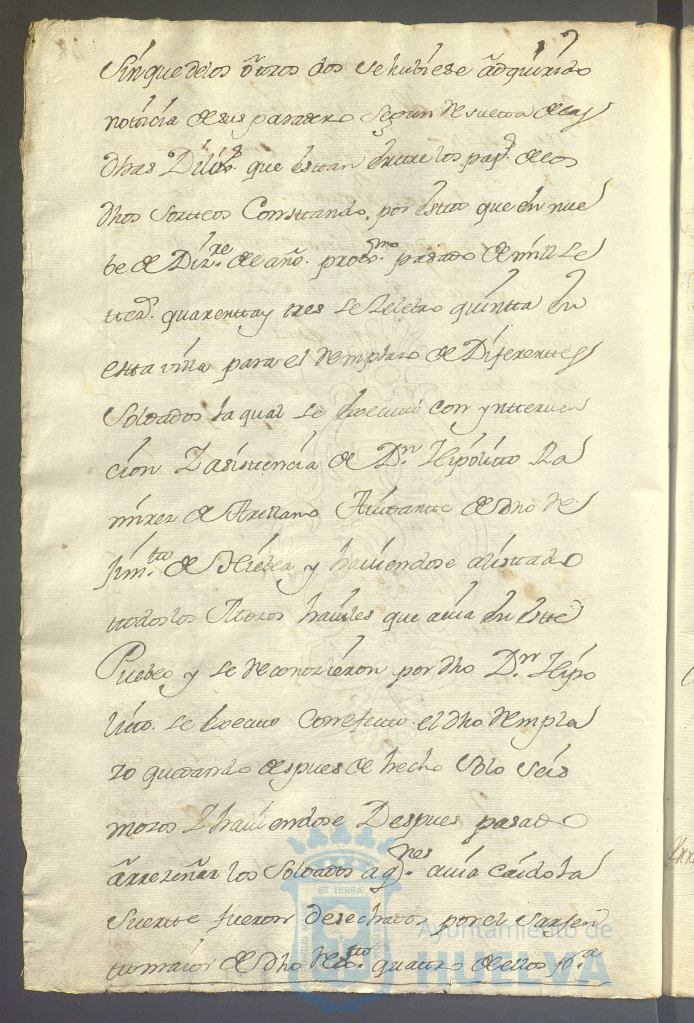 Sin que delos otros dos se hubiese adquirido
noticia de sus paradero segun resulta delas
dhas Dilix.s que estan entre los pap.s de los
dhos sorteos Constando, por estos que en nue
be de Diz.re de año. proxi.mo pasado de mill se
ttez.s quarentta y tres se zelebro quintta en
estta villa para el Remplazo de Diferenttes
Soldados la qual se executó con ynttervenº
cion Y asistencia de D.n Hipolitto Ra
mirez de Arellano Aiudantte de dho Re
Jim.tto de Niebla y hauiendose alisttado
ttodos los Mozos hauiles que auia en estte
Pueblo y se Reconozieron por dho D.n Hipo
litto. se executo Con efectto el dho Rempla
zo quedando despues de hecho solo seis
mozos Y hauiendose Despues pasado
a rreseñar los Soldados a q.nes auia Caido la
Suertte fueron desechados por el Sarjen
tto maior de dho Rex.tto quattro de ellos p.ra
ET TERRÆ
Ayuntamiento de
HUELVA